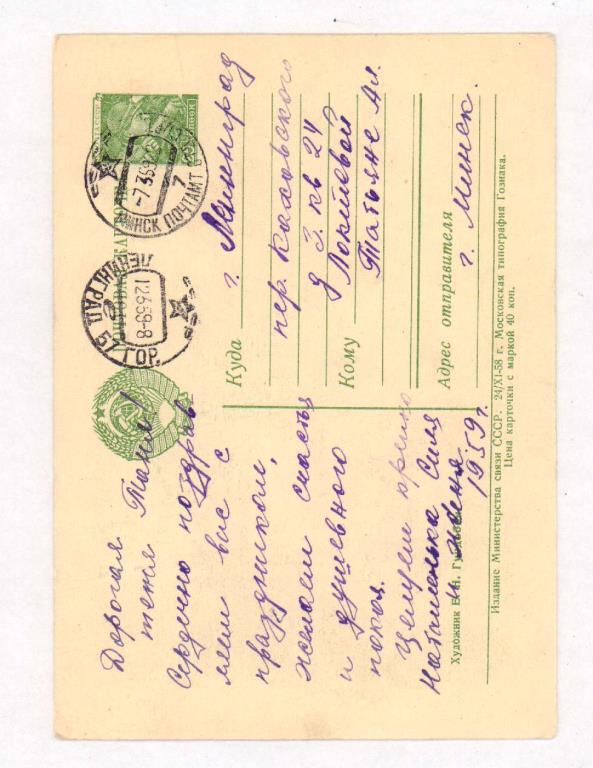 ПОЧТОВАЯ КАРТОЧКА
МИНСК ПОЧТАМТ
-7.3.59
7
ЛЕНИНГРАД
12.3.59-8
ГОР.
Куда г. Ленинград
пер. Каховского
д 3. кв 24
Кому Локтевой
Татьяне Ал.
Адрес отправителя
г. Минск.
Дорогая
тетя Таня!
Сердечно поздрав
ляем вас с
праздником,
желаем счастья
и душевного
покоя.
Целуем крепко
Наташенька Силя
и Женя.
1959г.
Художник Е.Н. Гундобин
Издание Министерства связи СССР. 24/XI-58 г. Московская типография Гознака.
Цена карточки с маркой 40 коп.